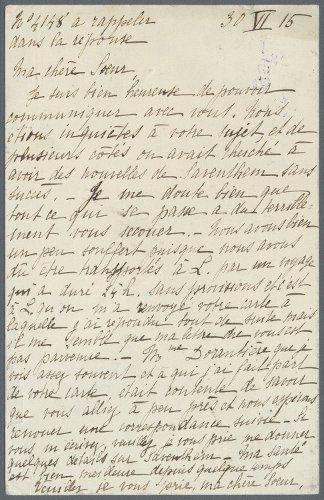 N° 4148 a rappeler 30 VI 15
dans la réponse
Ma chère Soeur
Je suis bien heureuse de pouvoir
communiquer avec vous. Nous
étions inquiètes à votre sujet et de
plusieurs côtés on avait cherché à
avoir des nouvelles de Saventhem sans
succès. - Je me doute bien que
tout ce qui se passe a du terrible-
ment vous secouer. - Nous avons bien
un peu souffert puisque nous avons
du être transportés à L. par un voyage
qui a duré 24 h, sans provisions et c'est
à L. qu'on m'a renvoyé votre carte à
laquelle j'ai répondu tout de suite mais
il me semble que ma lettre ne vous est
pas parvenue. - Mme Dorantière que je
vois assez souvent et à qui j'ai fait part
de votre carte était contente de savoir
que vous alliez à peu près et nous espérons
renouer une correspondance suivie. Si
vous m'écrivez, veuillez je vous prie me donner
quelques détails sur Saventhem. - Ma santé
est bien meilleure depuis quelque temps
Veuillez je vous prie, ma chère Soeur,